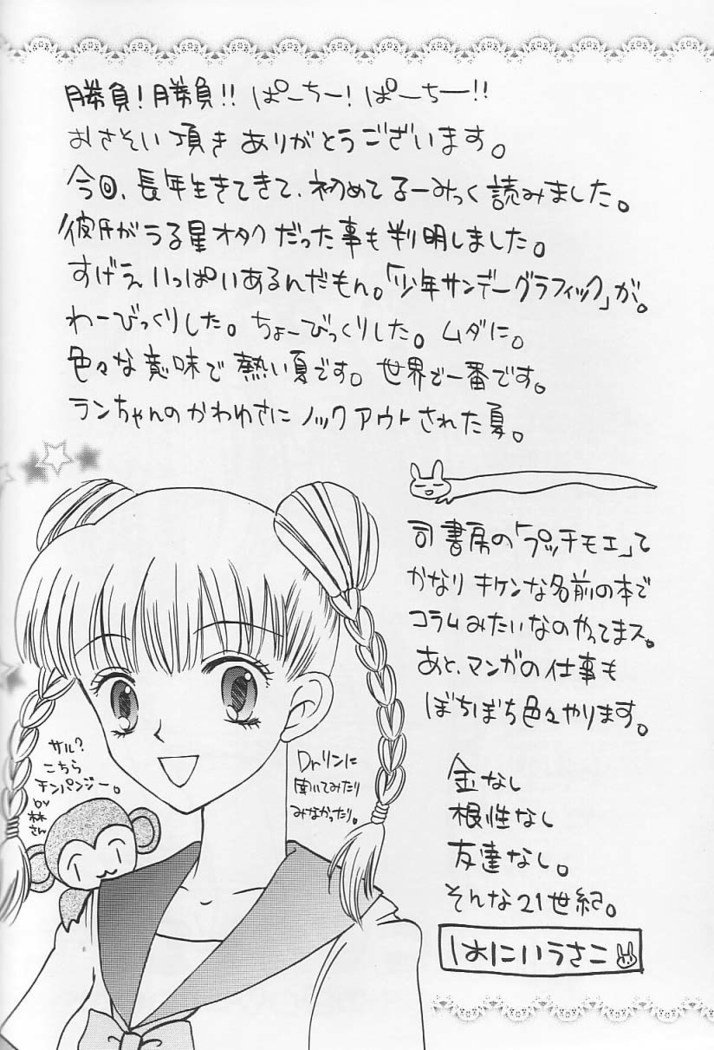 勝負!勝負!! ぱーちー!ぱーちー!!
おさそい頂きありがとうございます。
今回、長年生きてきて、初めてるーみっく読みました。
彼氏がうる星オタクだった事も判明しました。
すげえいっぱいあるんだもん。「少年サンデーグラフィック」が。
わーびっくりした。ちょーびっくりした。ムダに。
色々な意味で熱い夏です。世界で一番です。
ランちゃんのかわゆさにノックアウトされた夏。
司書房の「プッチモエ」て
かなりキケンな名前の本で
コラムみたいなのやってまス。
あと、マンガの仕事も
ぼちぼち色々やります。
サル?
こちら
チンパンジー。
by
林さん
Drリンに
聞いてみたり
みなかったり。
金なし
根性なし
友達なし。
そんな21世紀。
はにいうさこ